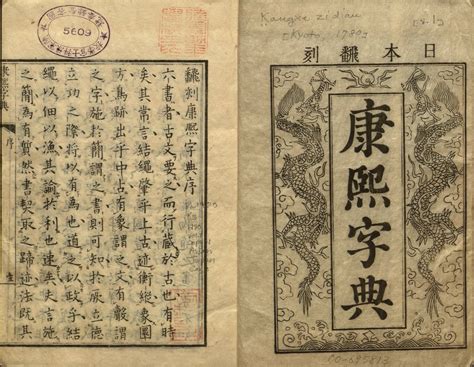 Kangxi zidian
(Kyoto, 1780)
日本翻刻
康熙字典
5609
翻刻康熙字典序
六書者古文要之而行藏於古也有時
矣其常言結繩肇乎上古迹衡縱象圓
方爲跡出乎中古有像謂之文有謂
之字施於簡謂之書則可知於厥立德
立功之際將以有為也道之以政乎結
繩以佃以漁其諭於利也速矣史言施
之簡為有然書契取之蹄迹法既其
康熙字典 序